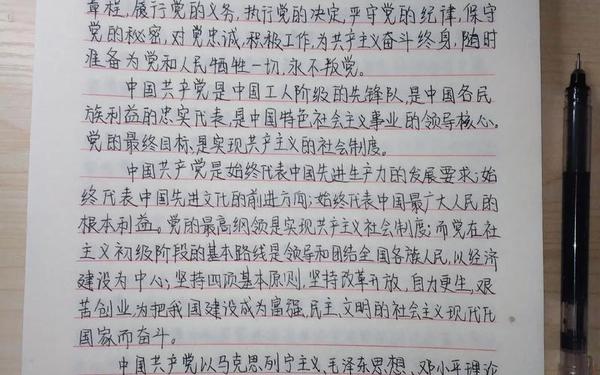 章程,履行党的义务,执行党的决定,严守党的纪律,保守
党的秘密,对党忠诚,积极工作,为共产主义奋斗终身,随时
准备为党和人民牺牲一切,永不叛党。
中国共产党是中国工人阶级的先锋队,是中国各民
族利益的忠实代表,是中国特色社会主义事业的领导核心。
党的最终目标,是实现共产主义的社会制度。
中国共产党是始终代表中国先进生产力的发展要求;始
终代表中国先进文化的前进方向;始终代表中国最广大人民的
根本利益。党的最高纲领是实现共产主义社会制度;而党在社
主义初级阶段的基本路线是领导和团结全国各族人民,以经济
建设为中心;坚持四项基本原则,坚持改革开放,自力更生,艰
苦创业,为把我国建设成为富强、民主、文明的社会主义现代化
国家而奋斗。
中国共产党以马克思列宁主义、毛泽东思想、邓小平理论